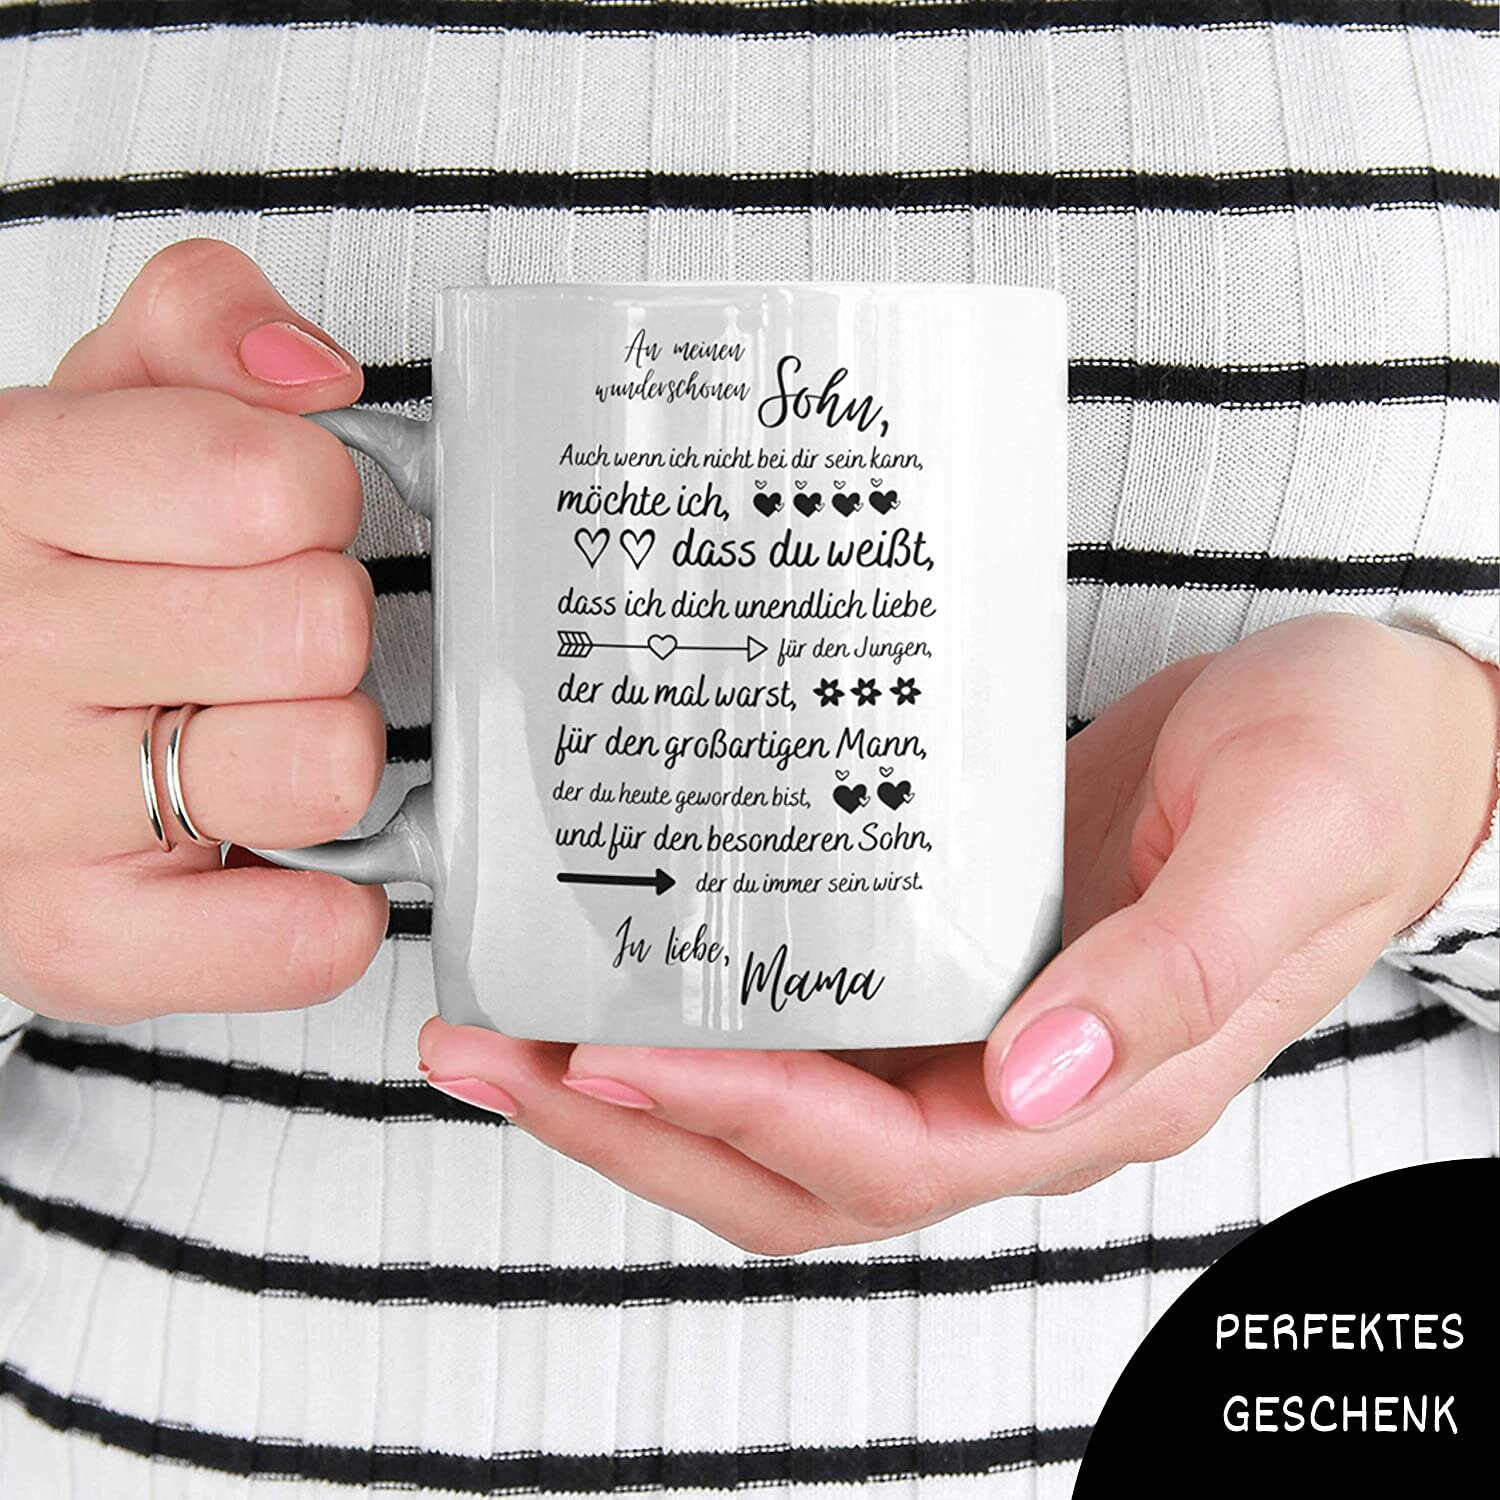 An meinen
wunderschönen Sohn,
Auch wenn ich nicht bei dir sein kann,
möchte ich,
dass du weißt,
dass ich dich unendlich liebe
für den Jungen,
der du mal warst,
für den großartigen Mann,
der du heute geworden bist,
und für den besonderen Sohn,
der du immer sein wirst.
In liebe, Mama
PERFEKTES
GESCHENK